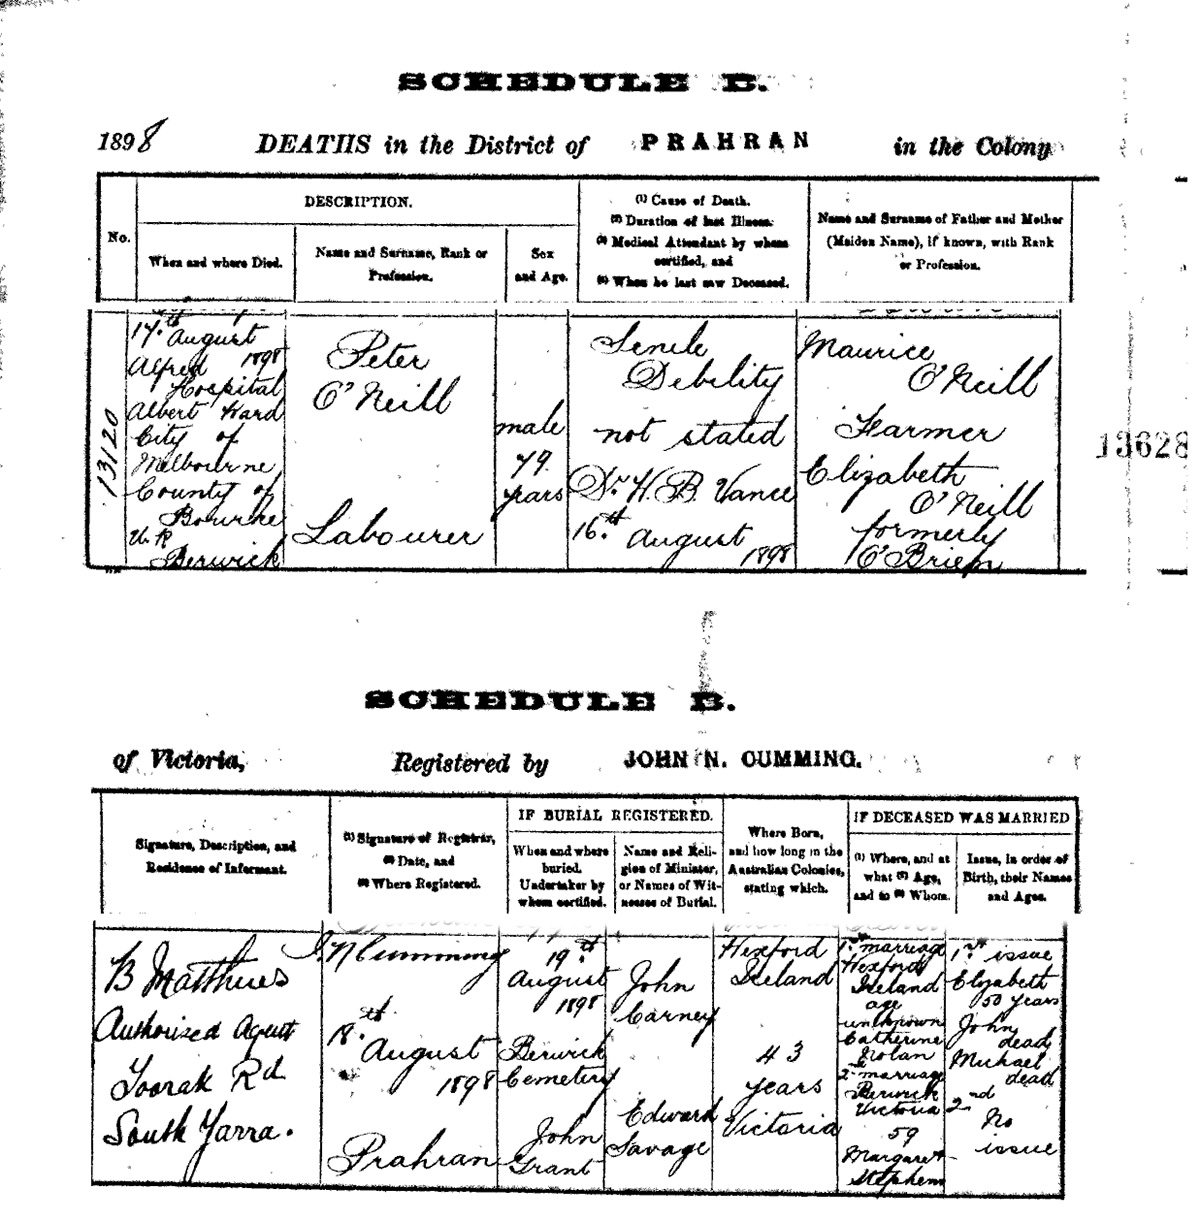 SCHEDULE B.
1898 DEATHS in the District of PRAHRAN in the Colony
No.
DESCRIPTION.
When and where Died.
Name and Surname, Rank or
Profession.
Sex
and Age.
(1) Cause of Death.
(2) Duration of last Illness.
(3) Medical Attendant by whom
certified, and
(4) When he last saw Deceased.
Name and Surname of Father and Mother
(Maiden Name), if known, with Rank
or Profession.
13120
17th August
1898
Alfred
Hospital
Albert Ward
City of
Melbourne
County of
Bourke
U. R
Berwick
Peter
O'Neill
Labourer
male
79
years
Senile
Debility
not stated
Dr. H. B. Vance
16th August
1898
Maurice
O'Neill
Farmer
Elizabeth
O'Neill
formerly
O'Brien
13628
SCHEDULE B.
of Victoria, Registered by JOHN N. CUMMING.
Signature, Description, and
Residence of Informant.
(1) Signature of Registrar,
(2) Date, and
(3) Where Registered.
IF BURIAL REGISTERED.
When and where
buried.
Undertaker by
whom certified.
Name and Reli-
gion of Minister,
or Names of Wit-
nesses of Burial.
Where Born,
and how long in the
Australian Colonies,
stating which.
IF DECEASED WAS MARRIED
(1) Where, and at
what (2) Age,
and to (3) Whom.
Issue, in order of
Birth, their Names
and Ages.
B Matthies
Authorized Agent
Toorak Rd
South Yarra.
J. N Cumming
18th
August
1898
Prahran
19th
August
1898
Berwick
Cemetery
John
Grant
John
Carney
Edward
Savage
Wexford
Ireland
43
years
Victoria
1st marriage
Wexford
Ireland
age
unknown
Catherine
Nolan
2nd marriage
Berwick
Victoria
59
Margaret
Stephens
1st issue
Elizabeth
50 years
John
dead
Michael
dead
2nd
No
issue